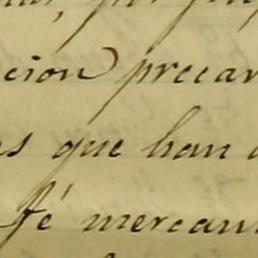 cion precar
s que han
fé mercan